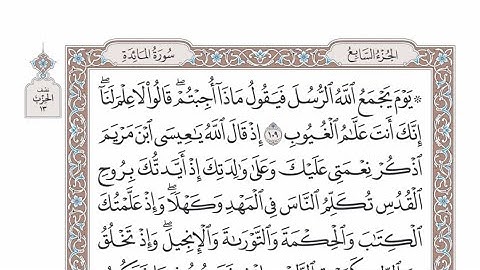 الجُزْءُ السَّابِعُ
سُورَةُ المَائِدَةِ
نصف
الحزب
١٣
۞ يَوْمَ يَجْمَعُ اللَّهُ الرُّسُلَ فَيَقُولُ مَاذَا أُجِبْتُمْ ۖ قَالُوا لَا عِلْمَ لَنَا ۖ
إِنَّكَ أَنتَ عَلَّٰمُ الْغُيُوبِ ۝١٠٩ إِذْ قَالَ اللَّهُ يَٰعِيسَى ابْنَ مَرْيَمَ
اذْكُرْ نِعْمَتِي عَلَيْكَ وَعَلَىٰ وَٰلِدَتِكَ إِذْ أَيَّدتُّكَ بِرُوحِ
الْقُدُسِ تُكَلِّمُ النَّاسَ فِي الْمَهْدِ وَكَهْلًا ۖ وَإِذْ عَلَّمْتُكَ
الْكِتَٰبَ وَالْحِكْمَةَ وَالتَّوْرَىٰةَ وَالْإِنجِيلَ ۖ وَإِذْ تَخْلُقُ